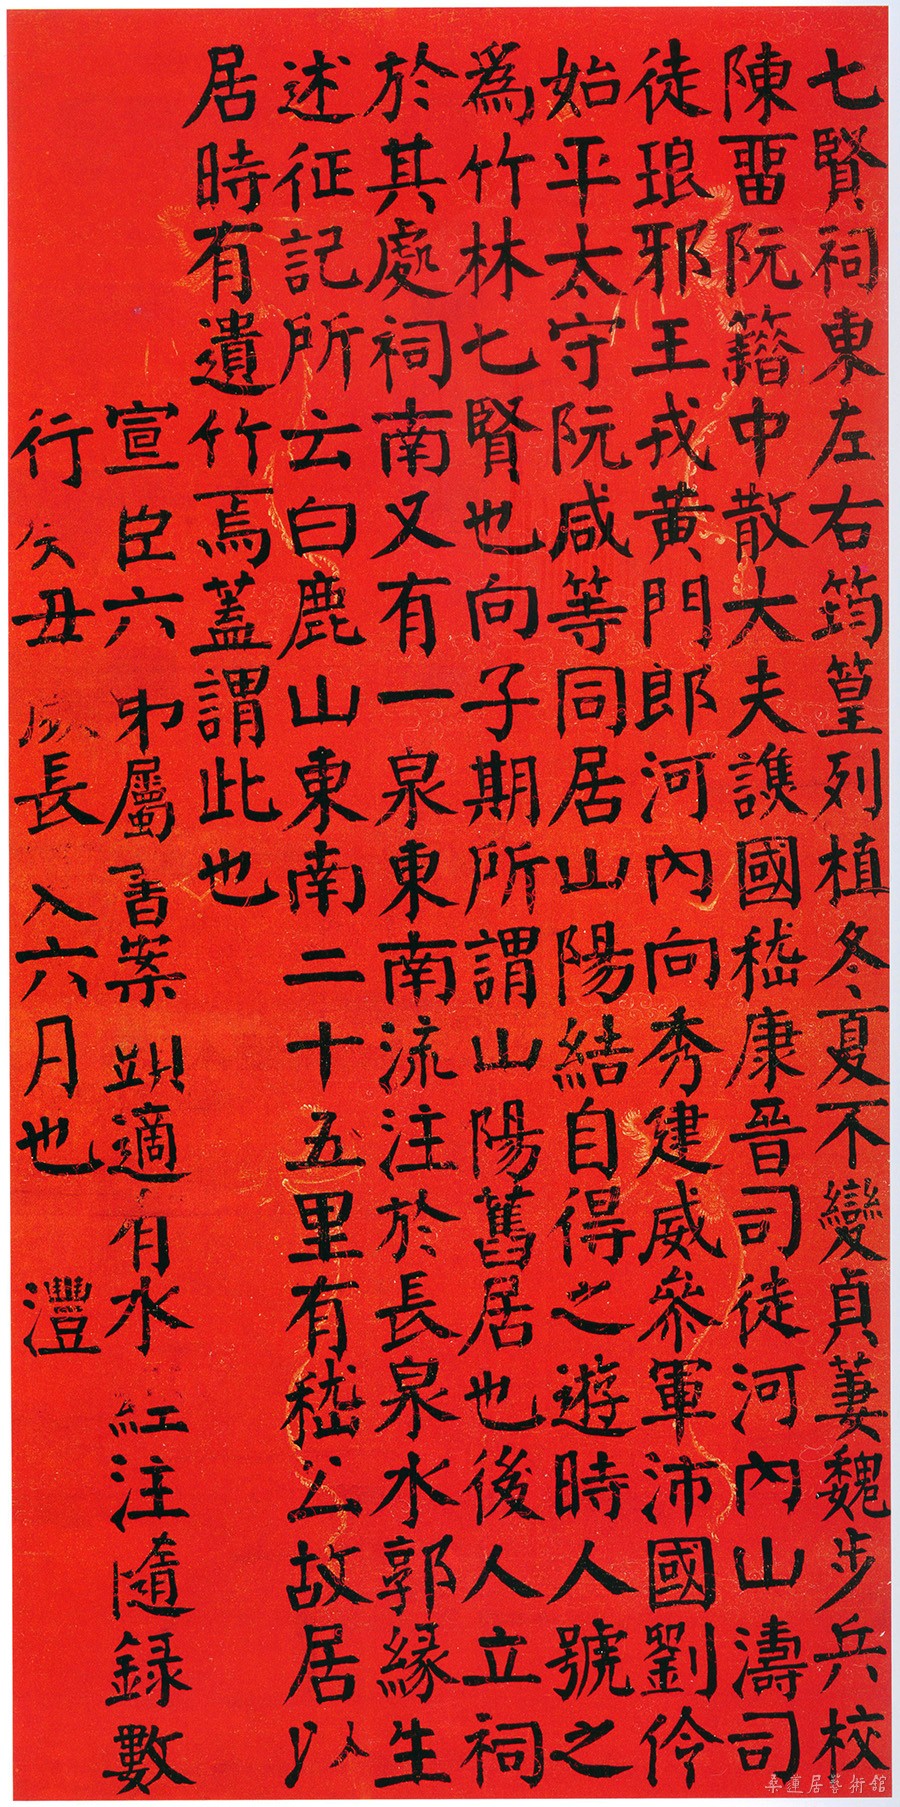 七賢祠東左右筠篁列植冬夏不變貞萋魏步兵校
陳畱阮籍中散大夫譙國嵇康晉司徒河內山濤司
徒琅邪王戎黃門郎河內向秀建威參軍沛國劉伶
始平太守阮咸等同居山陽結自得之遊時人號之
為竹林七賢也向子期所謂山陽舊居也後人立祠
於其處祠南又有一泉東南流注於長泉水郭緣生
述征記所云白鹿山東南二十五里有嵇公故居以
居時有遺竹焉蓋謂此也
宣臣六弟屬書案頭適有水經注隨錄數
行癸丑成長入六月也 澧
桑蓮居藝術館